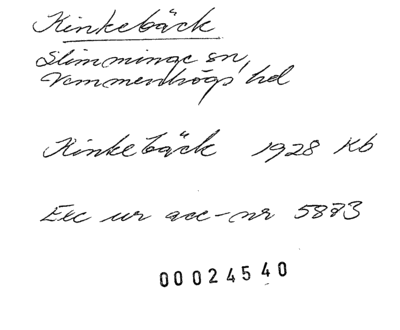 Kinkebäck
Slimminge sn,
Vemmenhögs hd
Kinkebäck 1928 Kb
Exc ur acc-nr 5873
00024540